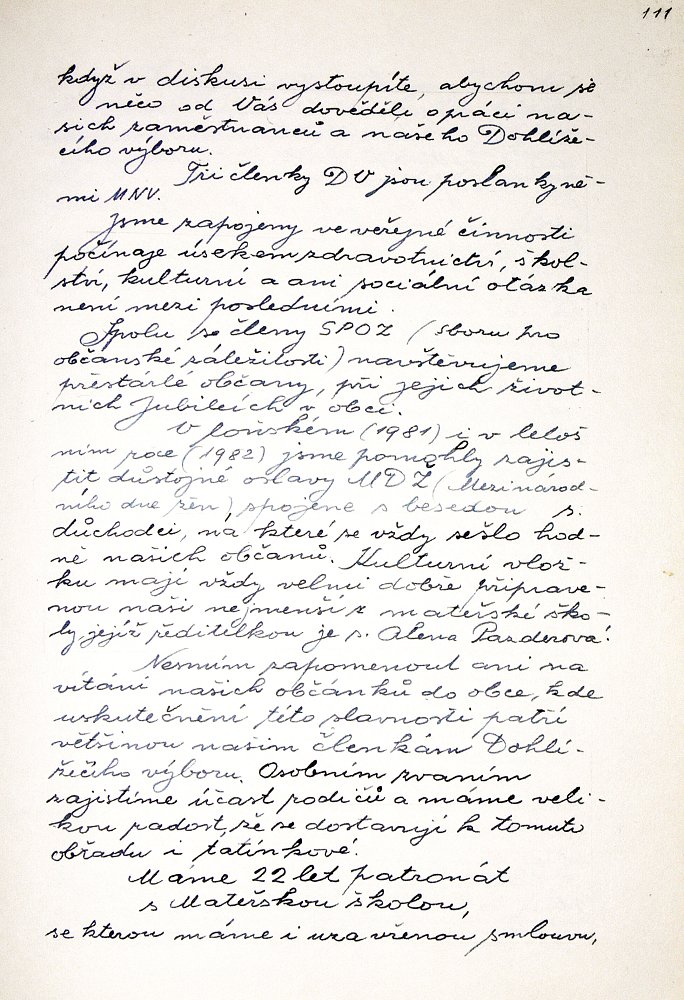 111
když v diskusi vystoupíte, abychom se
něco od Vás dověděli o práci na-
šich zaměstnanců a našeho Dohlíže-
cího výboru.
Tři členky DV jsou poslankyně-
mi MNV.
Jsme zapojeny ve veřejné činnosti
počínaje úsekem zdravotnictví, škol-
ství, kulturní a ani sociální otázka
není mezi posledními.
Spolu se členy SPOZ (sboru pro
občanské záležitosti) navštěvujeme
přestárlé občany, při jejich život-
ních Jubileích v obci.
V loňském (1981) i v letoš
ním roce (1982) jsme pomohly zajis-
tit důstojné oslavy MDŽ (Mezinárod-
ního dne žen) spojené s besedou s.
důchodci, na které se vždy sešlo hod-
ně našich občanů. Kulturní vlož-
ku mají vždy velmi dobře připrave-
nou naši nejmenší z mateřské ško-
ly jejíž ředitelkou je s. Alena Pazderová.
Nesmím zapomenout ani na
vítání našich občánků do obce, kde
uskutečnění této slavnosti patří
většinou našim členkám Dohlí-
žečího výboru. Osobním zvaním
zajistíme účast rodičů a máme veli-
kou radost, že se dostavují k tomuto
obřadu i tatínkové.
Máme 22 let patronát
s Mateřskou školou,
se kterou máme i uzavřenou smlouvu,